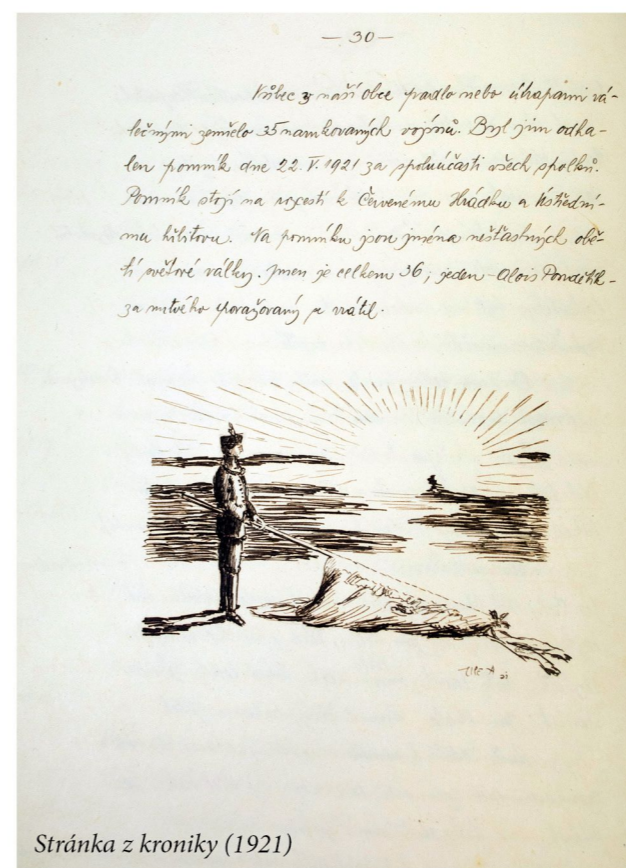 — 30 —
Vůbec z naší obce padlo nebo útrapami vá-
lečnými zemřelo 35 narukovaných vojínů. Byl jim odha-
len pomník dne 22. V. 1921 za spoluúčasti všech spolků.
Pomník stojí na rozcestí k Červenému Hrádku a Ústřední-
mu hřbitovu. Na pomníku jsou jména nešťastných obě-
tí světové války. Jmen je celkem 36; jeden - Alois
za mrtvého považovaný se vrátil.
Stránka z kroniky (1921)